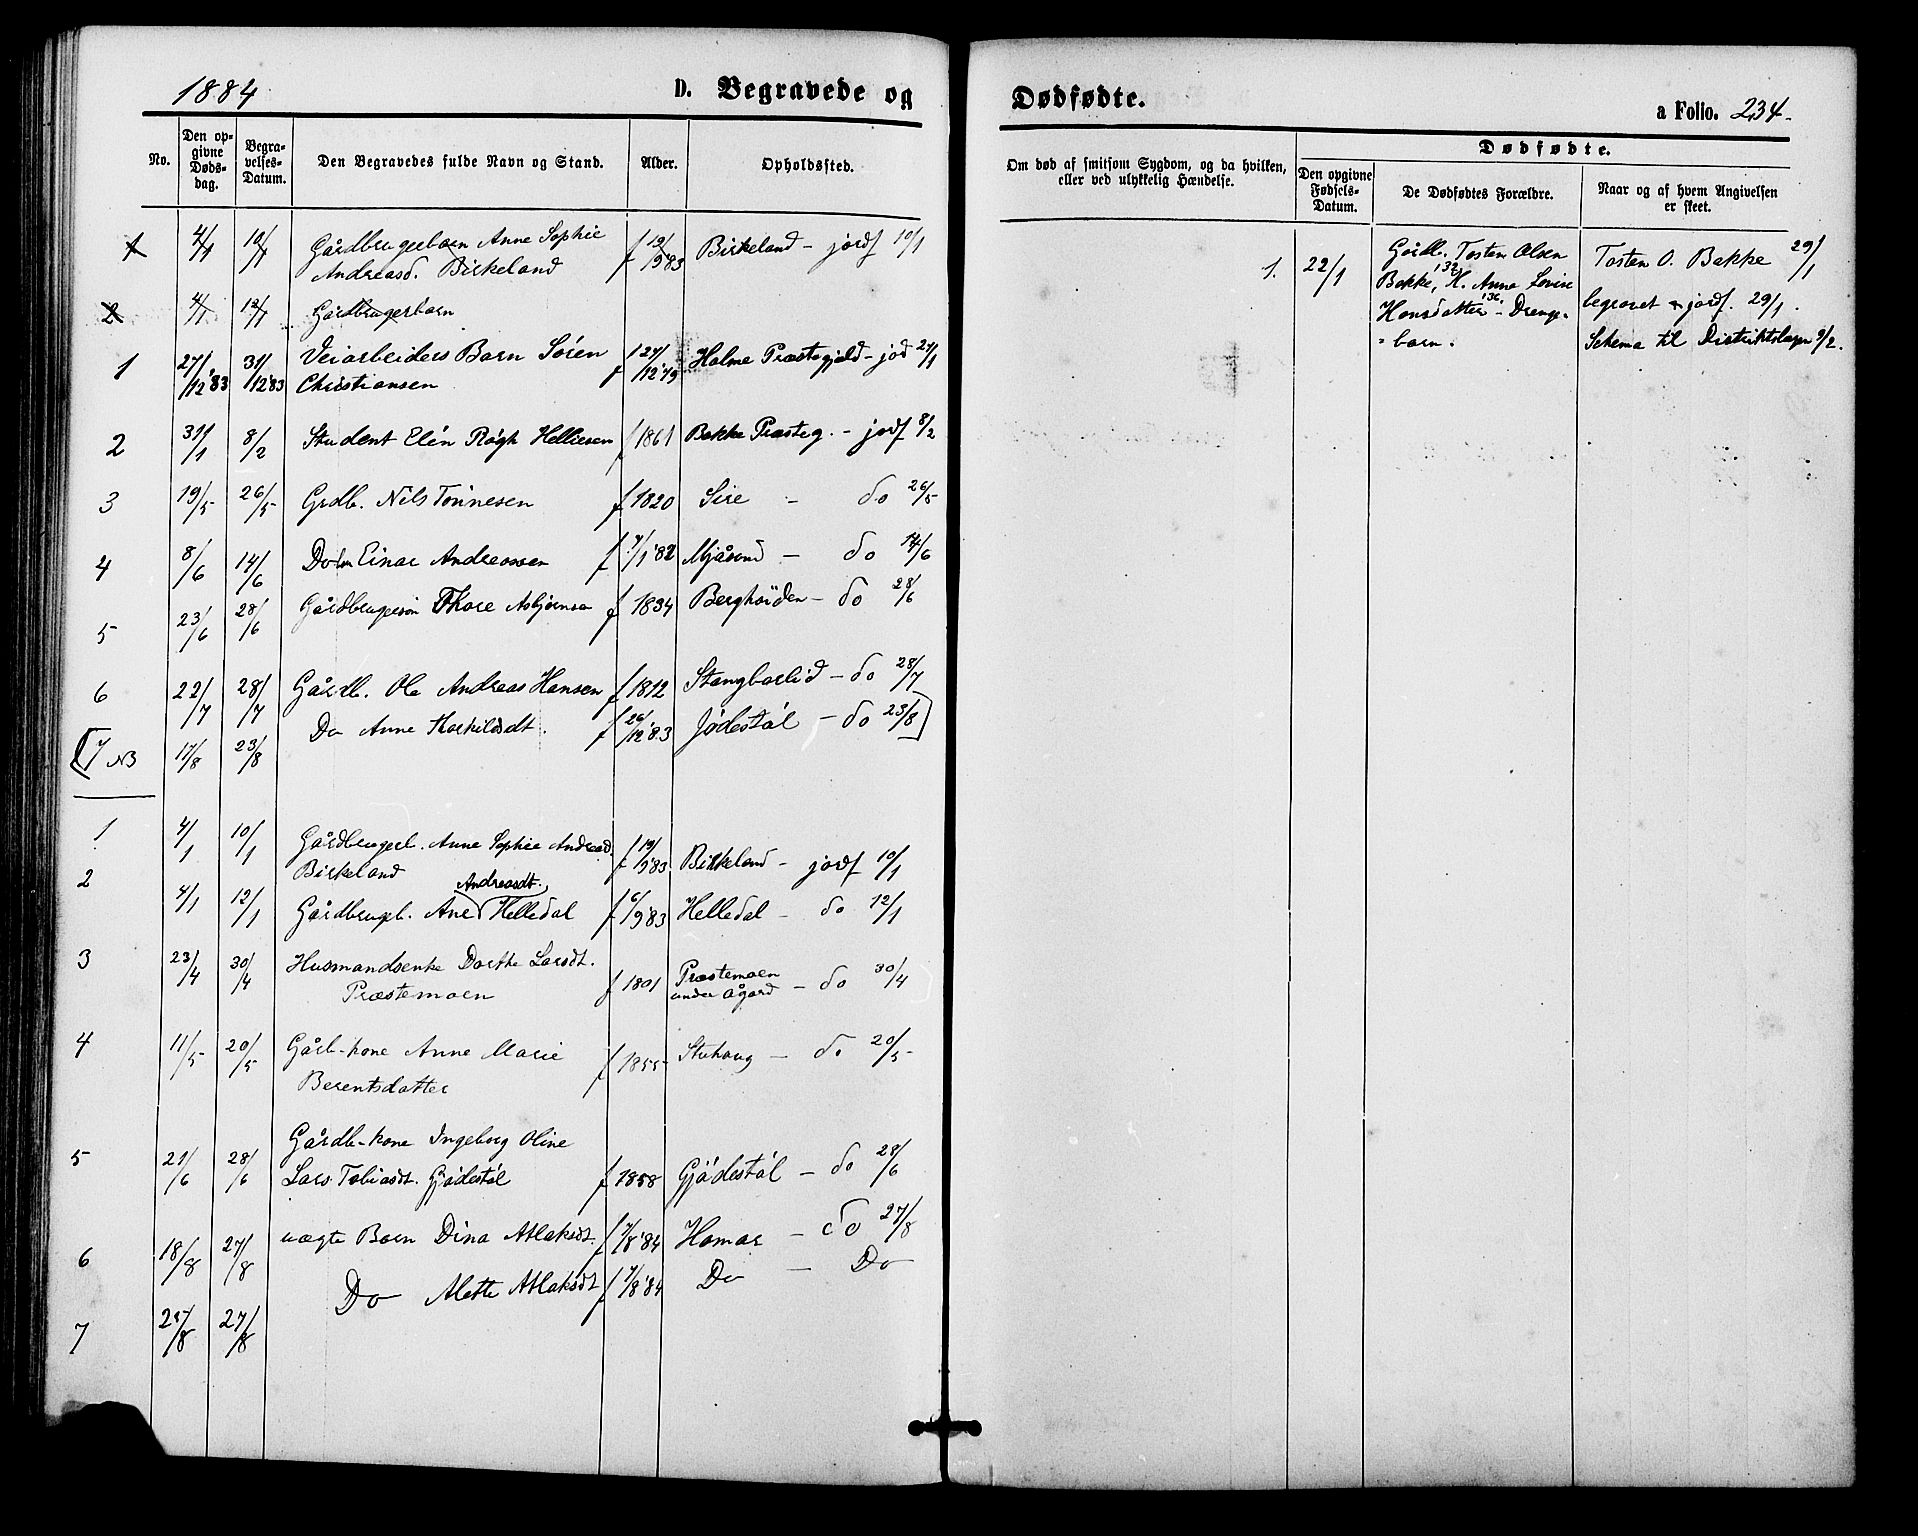 1884 D. Begravede og
No. Den opgivne Dødsdag. Begravelses-Datum. Den Begravedes fulde Navn og Stand. Alder. Opholdssted.
1 4/1 10/1 Gårdbrugerbarn Anne Sophie f 19/9 83 Birkeland – jordf 10/1
Andreasd. Birkeland
2 4/1 12/1 Gårdbrugerbarn
1 27/12 '83 31/12 83 Veiarbeiders Barn Sören f 27/12 '79 Holme Præstegjeld – jod 27/1
Christiansen
2 31/1 8/2 Student Elén Rögh Helliesen f 1861 Bakke Præsteg. – jorf 8/2
3 19/5 26/5 Grdb. Nils Tönnesen f 1820 Sire – do 26/5
4 8/6 14/6 Do Einar Andreassen f 7/1 '82 Mjåsund – do 14/6
5 23/6 28/6 Gårdbruger Thore Asbjørnsen f 1834 Berghöiden – do 28/6
6 22/7 28/7 Gårdb. Ole Andreas Hansen f 1812 Stangborlid – do 28/7
7 N3 17/8 23/8 Do Anne Thorkildsdt. f 26/12 '83 Jödestöl – do 23/8
1 4/1 10/1 Gårdbrugerb. Anne Sophie Andreasd. f 19/9 '83 Birkeland – jordf 10/1
Birkeland
2 4/1 12/1 Gårdbrugb. Ane Andreasdt. Helledal f 6/9 83 Helledal – do 12/1
3 23/4 30/4 Husmandsenke Dorthe Larsdt. f 1801 Præstemoen – do 30/4
Præstemoen under Ågard
4 11/5 20/5 Gårb-kone Anne Marie f 1855 Stuhaug – do 20/5
Berentsdatter
5 21/6 28/6 Gårdb-kone Ingeborg Oline
Lars Tobiasdt. Gjödestöl f 1858 Gjödestöl – do 28/6
6 18/8 27/8 uægte Barn Dina Atlaksdt. f 7/8 '84 Homar – do 27/8
7 25/8 27/8 Do Alette Atlaksdt f 7/8 '84 Do – Do
Dødfødte. a Folio. 234.
Om død af smitsom Sygdom, og da hvilken, eller ved ulykkelig Hændelse.
Dødfødte.
Den opgivne Fødsels-Datum. De Dødfødtes Forældre. Naar og af hvem Angivelsen er skeet.
1. 22/1 Gårdb. Tosten Olsen Tosten O. Bakke 29/1
Bakke, '32 K. Anna Lovise begravet + jordf. 29/1.
Hansdatter '36 – Drenge-
-barn. Schema til Distriktslægen 9/2.